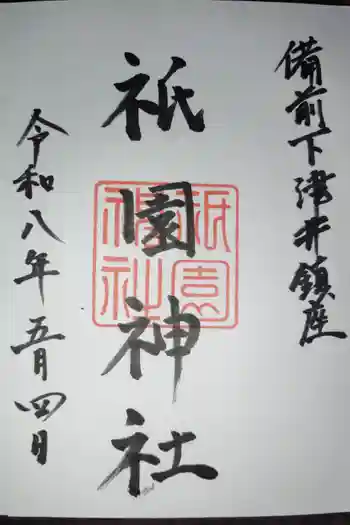 備前下津井鎮座
祇園神社
祇園神社
令和八年五月四日